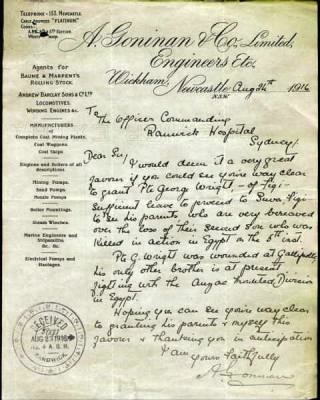 TELEPHONE - 153, NEWCASTLE
CABLE ADDRESS "PLATINUM"
A. Goninan & Co. Limited,
Engineers Etc.
Wickham, Newcastle Aug 24th 1916
N.S.W.
Agents for
BAUME & MARPENT'S
ROLLING STOCK.
ANDREW BARCLAY SONS & Co LTD
LOCOMOTIVES,
WINDING ENGINES &c.
MANUFACTURERS
of
Complete Coal Mining Plants,
Coal Waggons,
Coal Skips.
Engines and Boilers of all
descriptions
Mining Pumps.
Sand Pumps.
Boiler Mountings.
Steam Winches.
Marine Engines and
&c. &c.
Electrical Pumps and
Haulages.
To
The Officer Commanding
Ranwick Hospital
Sydney.
Dear Sir,
I would deem it a very great
favour if you could see you're way clear
to grant Pte George Wright, - of Fiji -
Sufficient leave to proceed to Suva, Fiji
to see his parents, who are very bereaved
over the loss of their Second Son who was
Killed in action in Egypt on the 5th inst.
Pte G. Wright was wounded at Gallipolli,
his only other brother is at present
fighting with the Anzac Mounted Division
in Egypt.
Hoping you can see you're way clear
to granting his parents & myself this
favour & thanking you in anticipation
I am
Yours faithfully
A. Goninan
RECEIVED
AUG 25 1916
No. 4 A.G.H.
RANDWICK